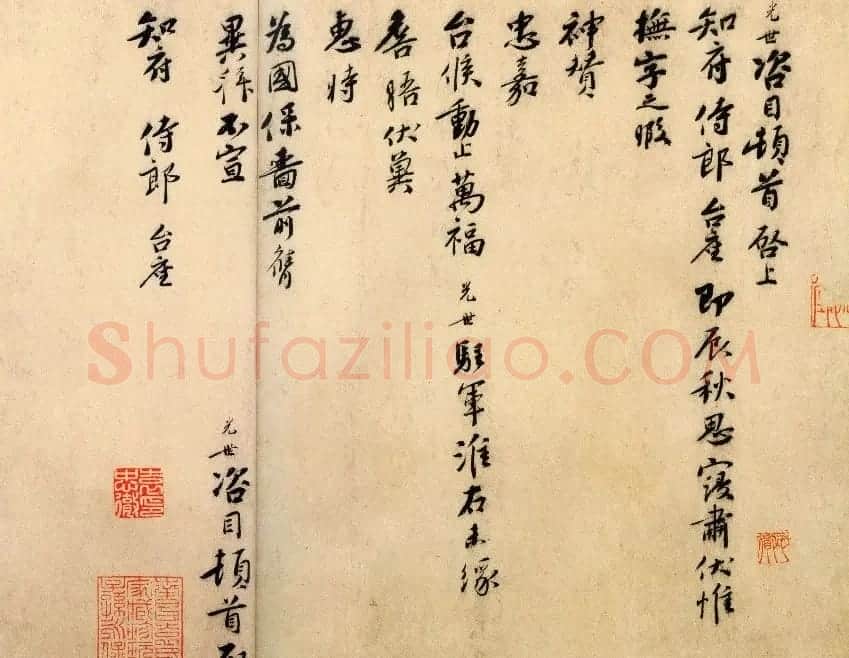 光世咨目頓首啓上
知府侍郎台座即辰秋思寖肅伏惟
撫字之暇
神贊
忠嘉
台候動止萬福光世駐軍淮右未緣
詹晤伏冀
惠時
為國保嗇前膺
異拜不宣
光世咨目頓首
知府侍郎台座
袁忠徹印
Shufaziliao.COM